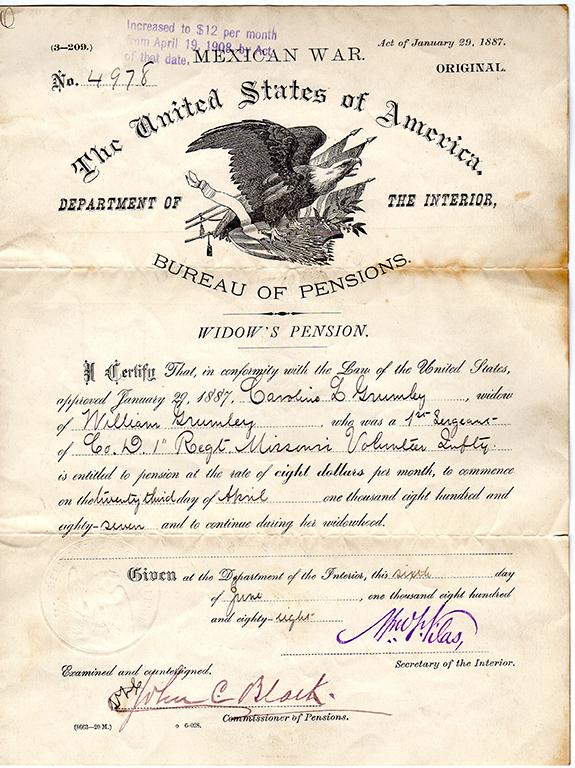 Increased to $12 per month
from April 19, 1908, by Act
of that date,
(3—209.)
MEXICAN WAR.
Act of January 29, 1887.
No. 4978
ORIGINAL.
The United States of America.
DEPARTMENT OF THE INTERIOR,
BUREAU OF PENSIONS.
WIDOW'S PENSION.
I Certify That, in conformity with the Law of the United States,
approved January 29, 1887, Caroline L Grumley, widow
of William Grumley who was a 1st Sergeant
of Co. D. 1" Regt Missouri Volunteer Infty.
is entitled to pension at the rate of eight dollars per month, to commence
on the twenty third day of April one thousand eight hundred and
eighty-seven and to continue during her widowhood.
Given at the Department of the Interior, this sixth day
of June, one thousand eight hundred
and eighty-eight
Wm. F. Vilas,
Secretary of the Interior.
Examined and countersigned.
John C Black.
Commissioner of Pensions.
(9063—20 M.) 6-028.